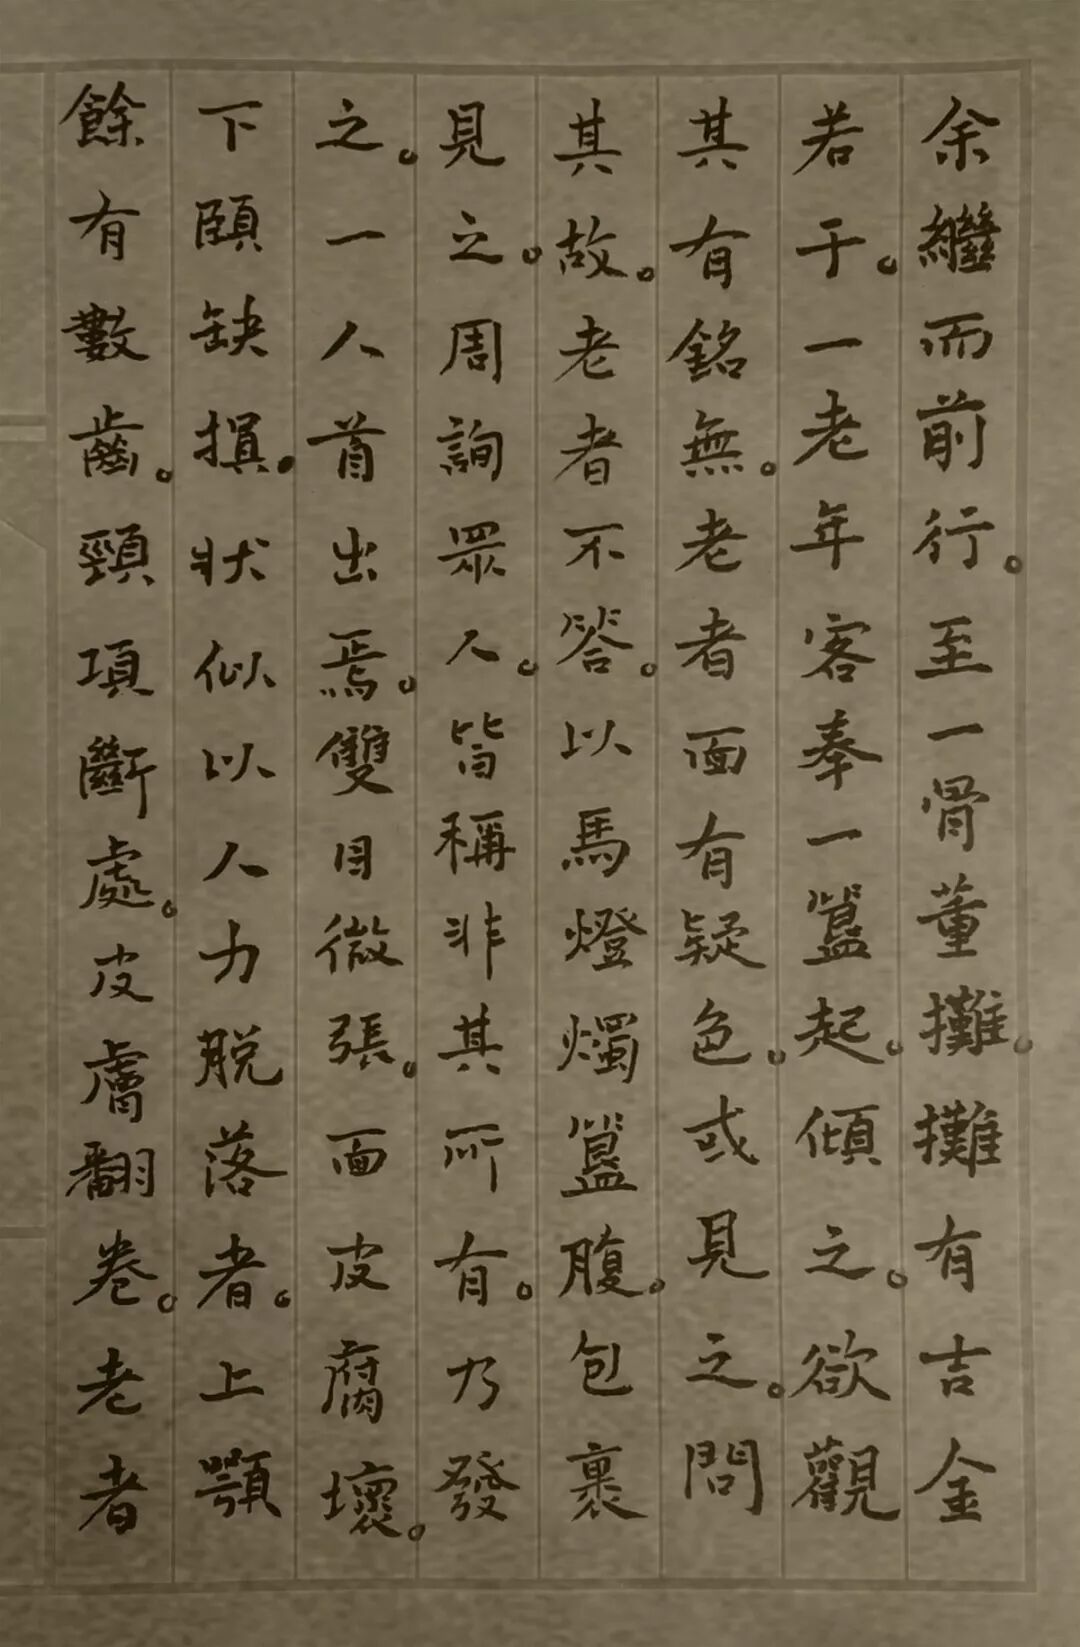 余繼而前行。至一骨董攤。攤有吉金
若于。一老年客奉一簋起。傾之。欲觀
其有銘無。老者面有疑色。或見之。問
其故。老者不答。以馬燈燭簋腹。包裹
見之。周詢眾人。皆稱非其所有。乃發
之。一人首出焉。雙目微張。面皮腐壞。
下頤缺損。狀似以人力脱落者。上顎
餘有數齒。頸項斷處。皮膚翻卷。老者